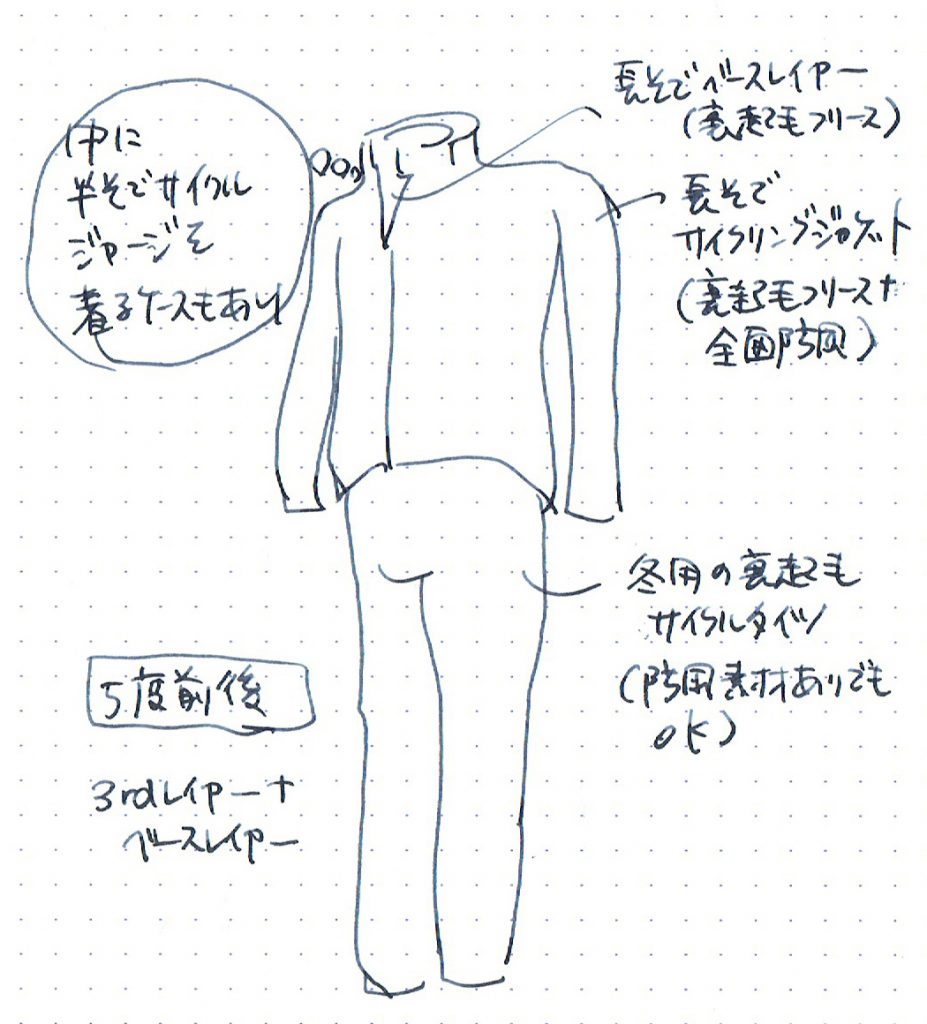 中に
半そでサイクル
ジャージを
着るケースもあり
長そでベースレイヤー
(裏起毛フリース)
長そで
サイクリングジャケット
(裏起毛フリース+
全面防風)
冬用の裏起毛
サイクルタイツ
(防風素材ありでも
OK)
5度前後
3rdレイヤー+
ベースレイヤー